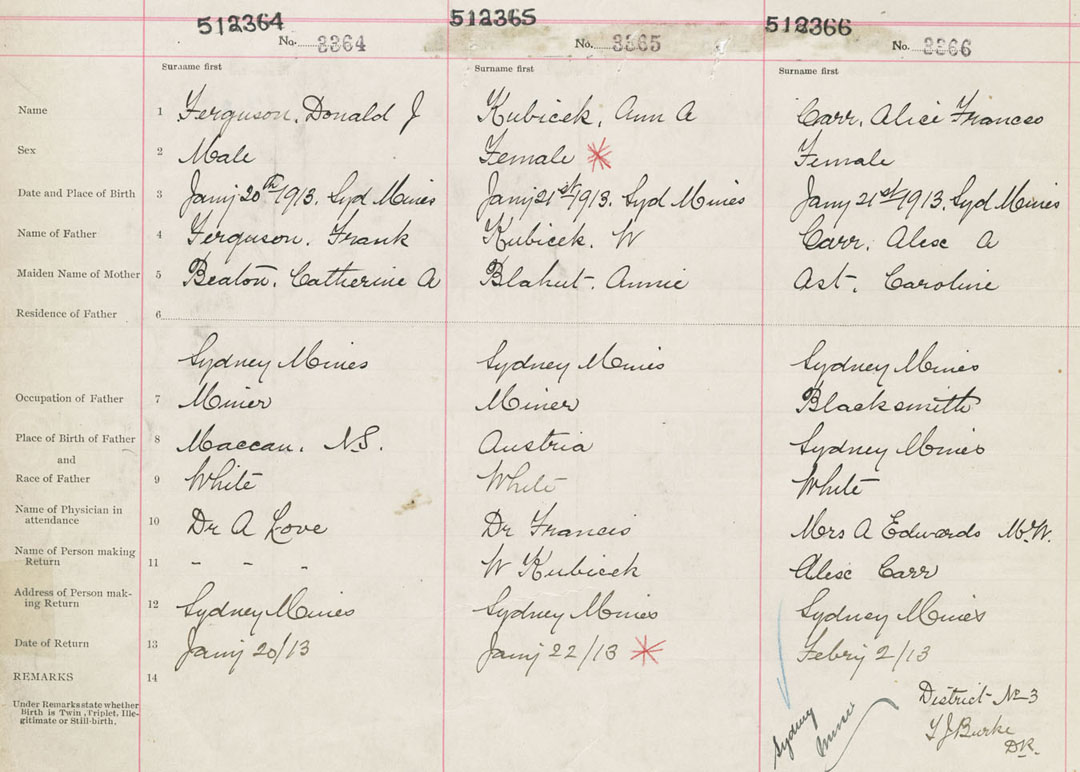 512364 512365 512366
No. 3364 No. 3365 No. 3366
Surname first Surname first Surname first
Name 1 Ferguson, Donald J Kubicek, Ann A Carr, Alice Frances
Sex 2 Male Female * Female
Date and Place of Birth 3 Jany 20th 1913. Syd Mines Jany 21st 1913. Syd Mines Jany 21st 1913. Syd Mines
Name of Father 4 Ferguson. Frank Kubicek. W Carr, Alex A
Maiden Name of Mother 5 Beaton, Catherine A Blahut. Annie Ast, Caroline
Residence of Father 6
Sydney Mines Sydney Mines Sydney Mines
Occupation of Father 7 Miner Miner Blacksmith
Place of Birth of Father 8 Maccan. N.S. Austria Sydney Mines
and
Race of Father 9 White White White
Name of Physician in
attendance 10 Dr A Love Dr Francis Mrs A Edwards M.W.
Name of Person making
Return 11 - - - W Kubicek Alex Carr
Address of Person mak-
ing Return 12 Sydney Mines Sydney Mines Sydney Mines
Date of Return 13 Jany 20/13 Jany 22/13 * Febry 2/13
REMARKS 14
Under Remarks state whether
Birth is Twin, Triplet, Ille-
gitimate or Still-birth.
Sydney
Mines
District No 3
T J Burke
D.R.